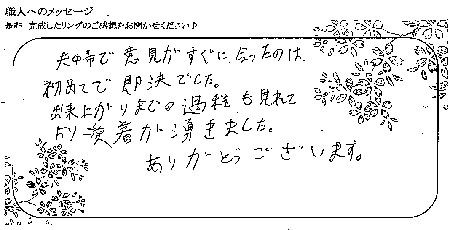 職人へのメッセージ
最部 完成したリングのご感想をお聞かせください♪
夫婦で意見がすぐに合ったのは、
初めてで即決でした。
出来上がりまでの過程も見れて
より愛着が湧きました。
ありがとうございます。